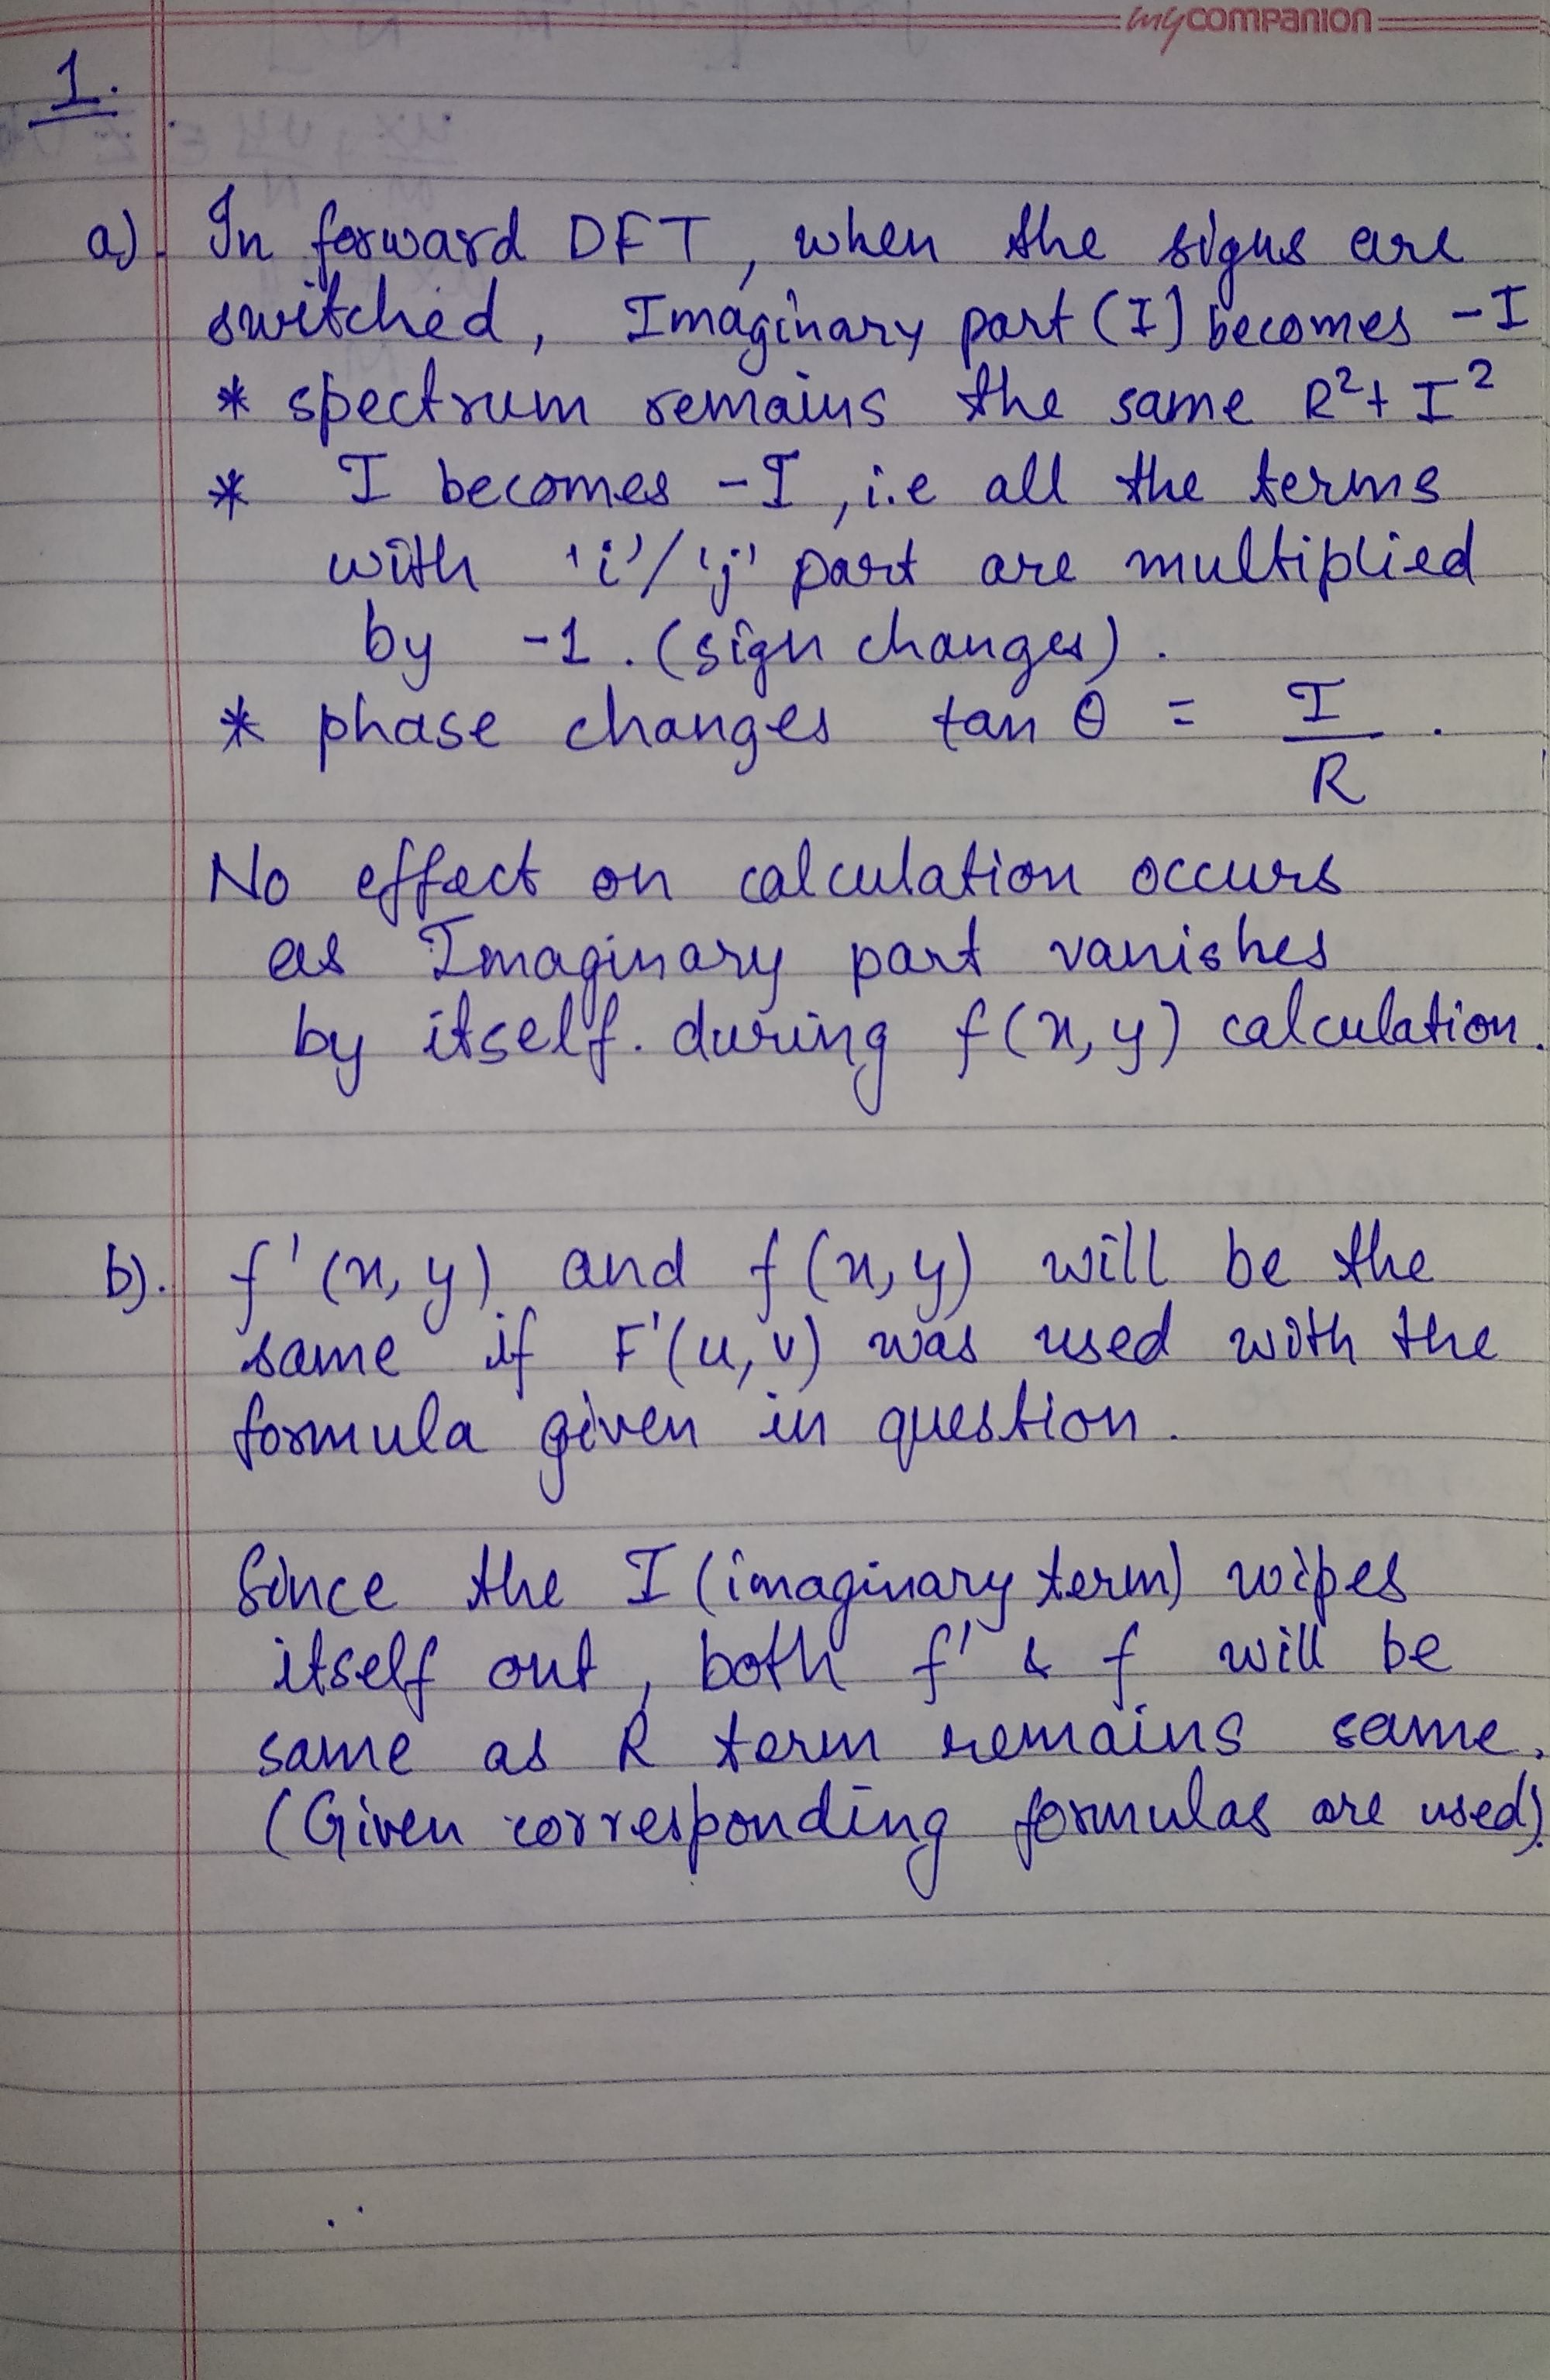 mycompanion
1.
a). In forward DFT, when the signs are
switched, Imaginary part (I) becomes -I
* spectrum remains the same R²+ I²
* I becomes -I, i.e all the terms
with 'i'/'j' part are multiplied
by -1. (sign changes).
* phase changes tan θ = I/R.
No effect on calculation occurs
as Imaginary part vanishes
by itself. during f(x,y) calculation.
b). f'(x,y) and f(x,y) will be the
same if F'(u,v) was used with the
formula given in question.
Since the I (imaginary term) wipes
itself out, both f' & f will be
same as R term remains same.
(Given corresponding formulas are used).